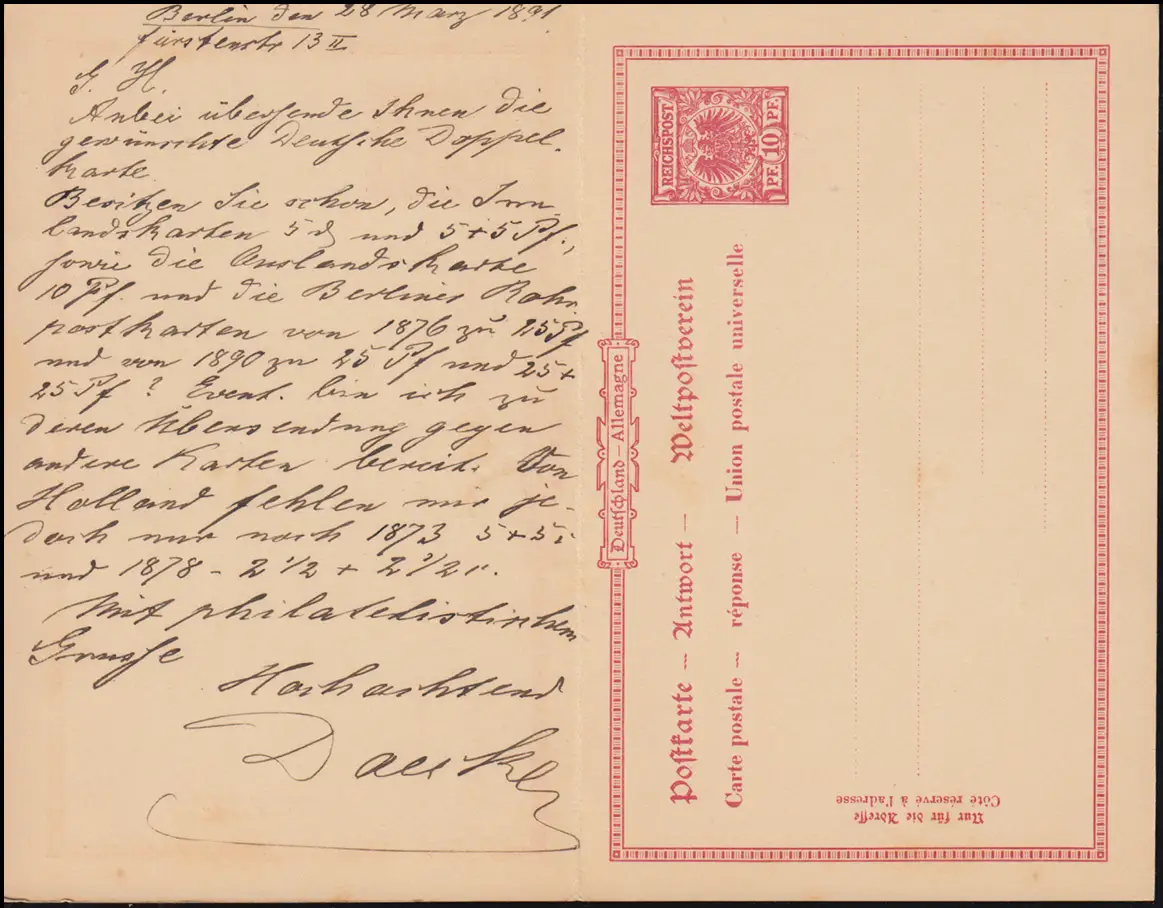 Berlin den 28 März 1891
Fürstenstr 13 II
G. H.
Anbei übersende Ihnen die
gewünschte Deutsche Doppel-
karte.
Besitzen Sie schon, die Inn
landskarten 5 ₰ und 5+5 Pf.,
sowie die Auslandskarte
10 Pf. und die Berliner Rohr
postkarten von 1876 zu 25 Pf
und von 1890 zu 25 Pf und 25+
25 Pf? Event. bin ich zu
deren Übersendung gegen
andere Karten bereit. Von
Holland fehlen mir je-
doch nur noch 1873 5+5
und 1878 - 2 1/2 + 2 1/2
Mit philatelistischem
Grusse
Hochachtend
REICHSPOST
PF. 10 PF.
Deutschland – Allemagne
Postkarte — Antwort — Weltpostverein
Carte postale — réponse — Union postale universelle
Nur für die Adresse
Côté réservé à l'adresse